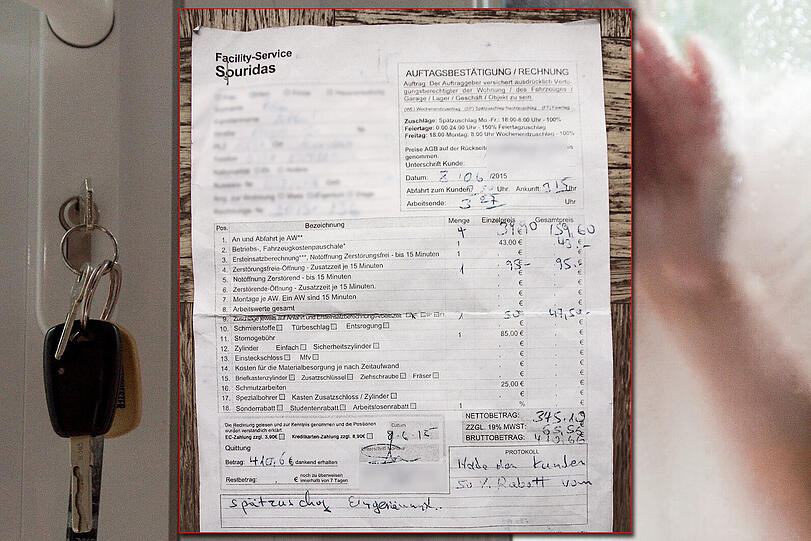 Facility-Service
Souridas
AUFTAGSBESTÄTIGUNG / RECHNUNG
Auftrag: Der Auftraggeber versichert ausdrücklich Verfü-
gungsberechtigter der Wohnung / des Fahrzeuges /
Garage / Lager / Geschäft / Objekt zu sein.
Zuschläge: Spätzuschlag Mo.-Fr.: 18:00-6:00 Uhr - 100%
Feiertage: 0:00-24:00 Uhr - 150% Feiertagzuschlag
Freitag: 18:00-Montag: 8:00 Uhr Wochenendzuschlag - 100%
Preise AGB auf der Rückseite
genommen.
Unterschrift Kunde:
Datum: 8 /06 /2015
Abfahrt zum Kunden: Uhr. Ankunft: 315 Uhr
Arbeitsende: 3 27 Uhr
Pos. Bezeichnung Menge Einzelpreis Gesamtpreis
1. An und Abfahrt je AW** 4 39,90 159,60
2. Betriebs-, Fahrzeugkostenpauschale* 1 43,00 € 43,-
3. Ersteinsatzberechnung***, Notöffnung Zerstörungsfrei - bis 15 Minuten 1 €
4. Zerstörungsfreie-Öffnung - Zusatzzeit je 15 Minuten 1 95,- 95,-
5. Notöffnung Zerstörend - bis 15 Minuten €
6. Zerstörende-Öffnung - Zusatzzeit je 15 Minuten. €
7. Montage je AW. Ein AW sind 15 Minuten €
8. Arbeitswerte gesamt €
9. 1 50 47,50
10. Schmierstoffe Türbeschlag Entsorgung €
11. Stornogebühr 1 85,00 €
12. Zylinder Einfach Sicherheitszylinder €
13. Einsteckschloss Mfv €
14. Kosten für die Materialbesorgung je nach Zeitaufwand €
15. Briefkastenzylinder Zusatzschlüssel Ziehschraube Fräser €
16. Schmutzarbeiten 25,00 €
17. Spezialbohrer Kasten Zusatzschloss / Zylinder €
18. Sonderrabatt Studentenrabatt Arbeitslosenrabatt 1 %
Die Rechnung gelesen und zur Kenntnis genommen und die Positionen
wurden verständlich erklärt.
EC-Zahlung zzgl. 3,90€ Kreditkarten-Zahlung zzgl. 8,90€
Datum
8.6.15
Quittung
Betrag: 410,66 dankend erhalten
Restbetrag: € noch zu überweisen
innerhalb von 7 Tagen
NETTOBETRAG: 345.10
ZZGL. 19% MWST: 65,55
BRUTTOBETRAG: 410,66
PROTOKOLL
Habe den Kunden
50 % Rabatt vom
spätzuschlag Eingeräumt..